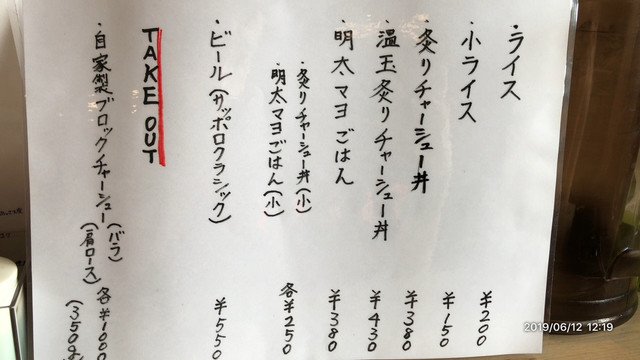 ・ライス ¥200
・小ライス ¥150
・炙りチャーシュー丼 ¥380
・温玉炙りチャーシュー丼 ¥430
・明太マヨごはん ¥380
・炙りチャーシュー丼(小)
・明太マヨごはん(小) 各¥250
・ビール(サッポロクラシック) ¥550
TAKE OUT
・自家製ブロックチャーシュー(バラ)(肩ロース) 各¥1000
(350g
2019/06/12 12:19